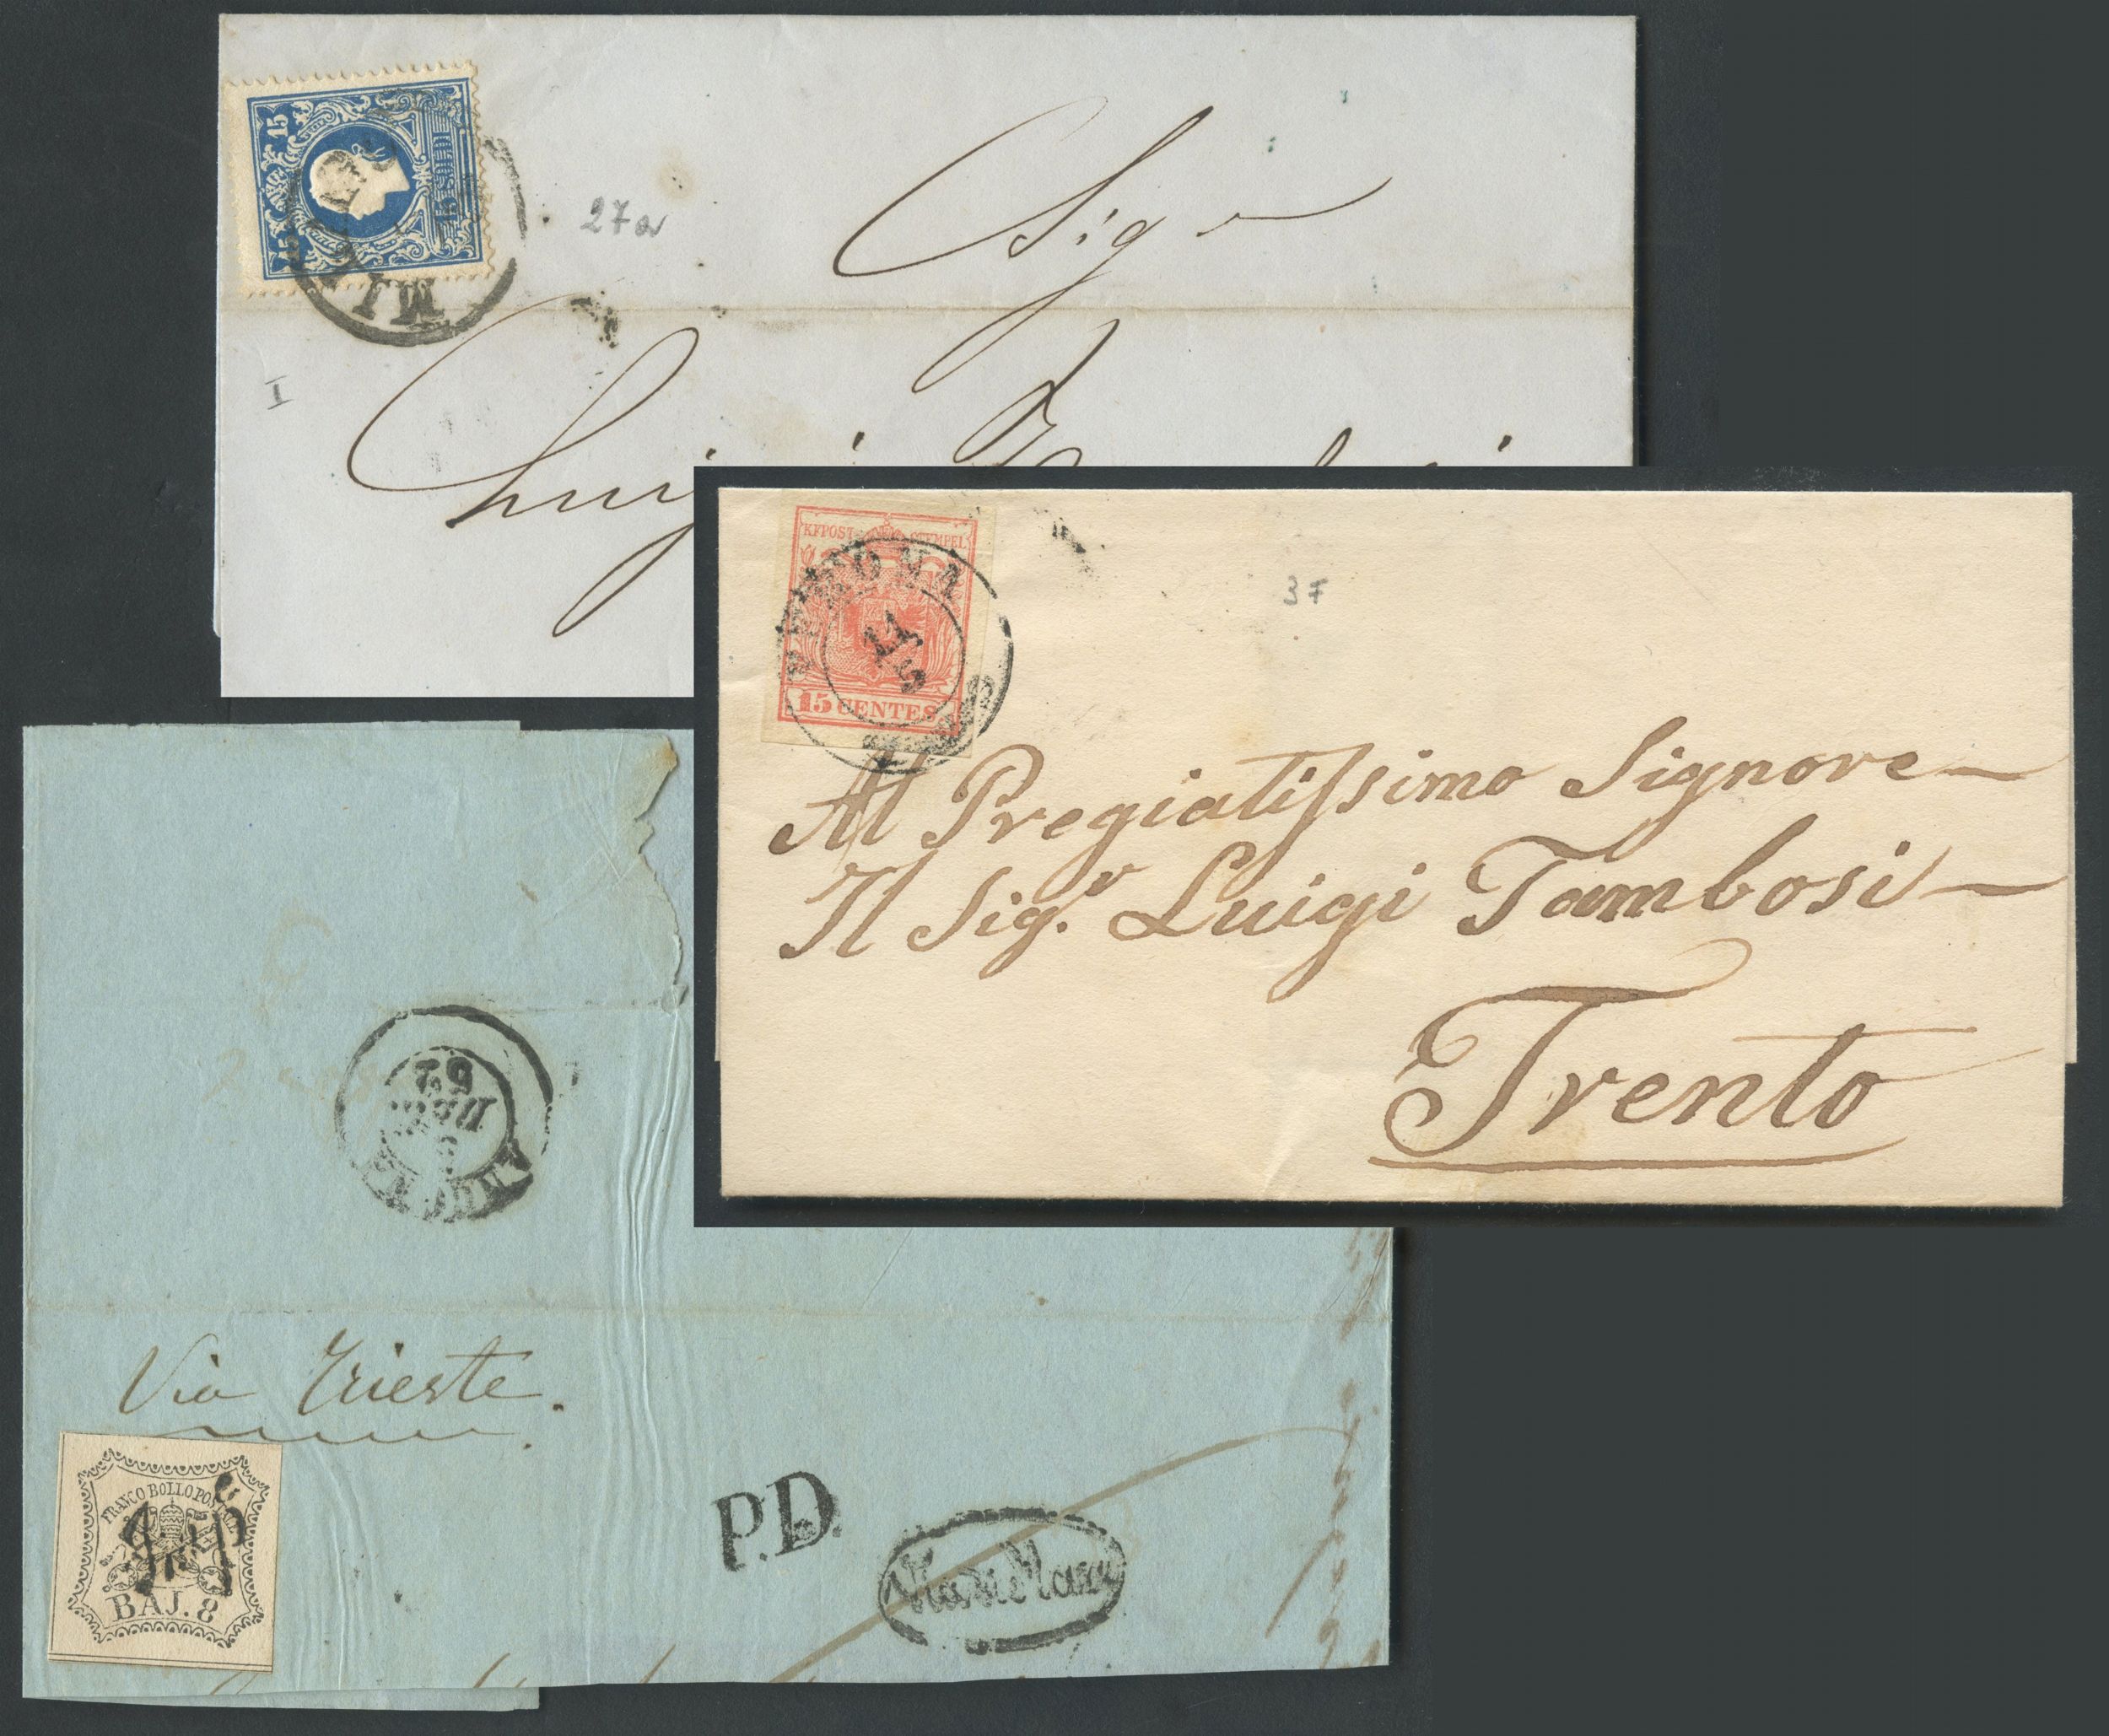 15
15
15 SOLDI
MILANO
27a
Sigr
I
Luigi
KKPOST-STEMPEL
CREMONA
11
5
15 CENTES
37
Al Pregiatissimo Signore
Il Sig.r Luigi Tambosi
Trento
62
ANCONA
Via Trieste.
FRANCO BOLLO POSTALE
BAJ. 8
P.D.
Via di Mare